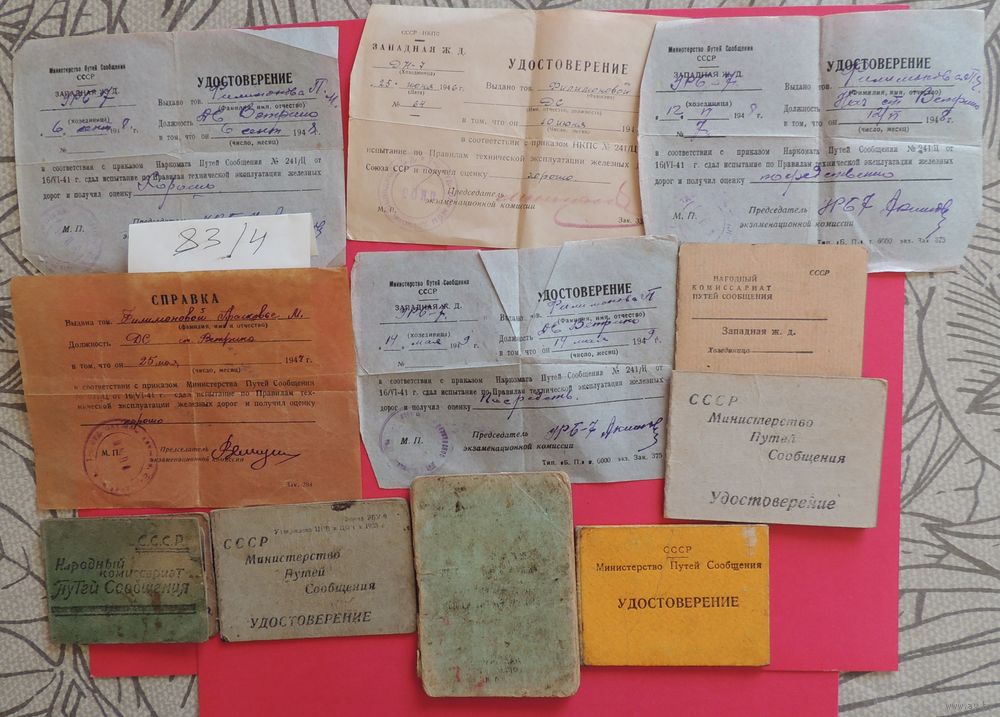 Министерство Путей Сообщения
СССР
ЗАПАДНАЯ Ж.Д.
УРБ-7
6 сент 1948 г.
№
УДОСТОВЕРЕНИЕ
Выдано тов. Филимонова П. М.
(фамилия, имя, отчество)
Должность ДС Ветрино
в том, что он 6 сент 1948 г.
(число, месяц)
в соответствии с приказом Наркомата Путей Сообщения № 241/Ц от
16/VI-41 г. сдал испытание по Правилам технической эксплуатации железных
дорог и получил оценку Хорошо
М. П.
СССР НКПС
ЗАПАДНАЯ Ж. Д.
ДН-7
(Хозединица)
25 июня 1946 г.
(Дата)
№ 64
УДОСТОВЕРЕНИЕ
Выдано тов. Филимоновой
(фамилия, имя, отчество)
Должность ДС
в том, что он 10 июня 194
(число, месяц)
в соответствии с приказом НКПС № 241/Ц
испытание по Правилам технической эксплуатации железных
Союза ССР и получил оценку хорошо
Председатель
экзаменационной комиссии
М. П.
Зак. 3
Министерство Путей Сообщения
СССР
ЗАПАДНАЯ Ж/Д.
УРБ-7
(хозединица)
12 VI 1948 г.
№ 7
УДОСТОВЕРЕНИЕ
Выдано тов. Филимонова П
(фамилия, имя, отчество)
Должность Нач ст Ветрино
в том, что он 12/VI 1948 г.
(число, месяц)
в соответствии с приказом Наркомата Путей Сообщения № 241/Ц от
16/VI-41 г. сдал испытание по Правилам технической эксплуатации железных
дорог и получил оценку посредственно
Председатель УРБ-7
экзаменационной комиссии
М. П.
Тип. «Б. П.» и. 6000 экз. Зак. 375
83/4
СПРАВКА
Выдана тов. Филимоновой Прасковье М.
(фамилия, имя и отчество)
Должность ДС ст. Ветрино
в том, что он 25 мая 1947 г.
(число, месяц)
в соответствии с приказом Министерства Путей Сообщения
от 16/VI-41 г. сдал испытание по Правилам тех-
нической эксплуатации железных дорог и получил оценку
хорошо
М. П.
Председатель
экзаменационной комиссии
Зак. 284
Министерство Путей Сообщения
СССР
ЗАПАДНАЯ Ж. Д.
УРБ-7
(хозединица)
14 мая 1949 г.
№
УДОСТОВЕРЕНИЕ
Выдано тов. Филимонова П
(фамилия, имя, отчество)
Должность ДС Ветрино
в том, что он 14 мая 1949 г.
(число, месяц)
в соответствии с приказом Наркомата Путей Сообщения № 241/Ц от
16/VI-41 г. сдал испытание по Правилам технической эксплуатации железных
дорог и получил оценку Посредств.
М. П.
Председатель УРБ-7
экзаменационной комиссии
Тип. «Б. П.» и. 6000 экз. Зак. 375
СССР
НАРОДНЫЙ
КОМИССАРИАТ
ПУТЕЙ СООБЩЕНИЯ
Западная ж. д.
Хозединица
СССР
Министерство
Путей
Сообщения
Удостоверение
СССР
Народный
комиссариат
Путей Сообщения
СССР
Министерство
Путей
Сообщения
УДОСТОВЕРЕНИЕ
СССР
Министерство Путей Сообщения
УДОСТОВЕРЕНИЕ